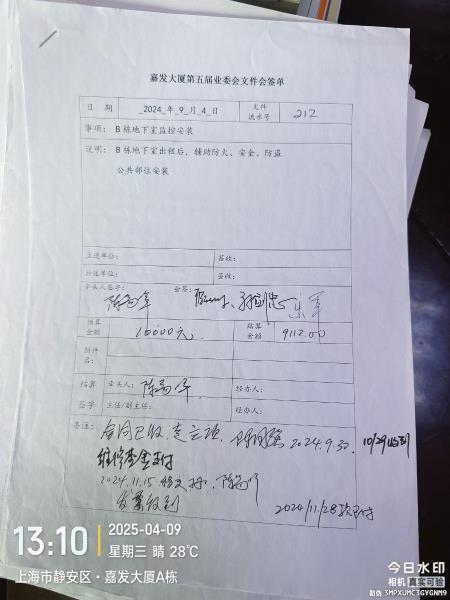 嘉发大厦第五届业委会文件会签单
日 期 2024 年 9 月 4 日 文件流水号 212
事项: B 栋地下室监控安装
说明: B 栋地下室出租后、辅助防火、安全、防盗
公共部位安装
主送单位: 签收:
抄送单位: 签收:
牵头人签字: 会签:
预算金额 10000元 结算金额 9112.00
附件名:
结算 牵头人: 经办人:
签字 主任/副主任: 经办人:
备注: 合同已收. 2024.9.30. 10/29收到
维修基金支付
2024.11.15
发票收到 2024/11/28
13:10 2025-04-09
星期三 晴 28℃
上海市静安区·嘉发大厦A栋
今日水印
相机 真实可验
防伪 3MPXUMC3GYGNM9